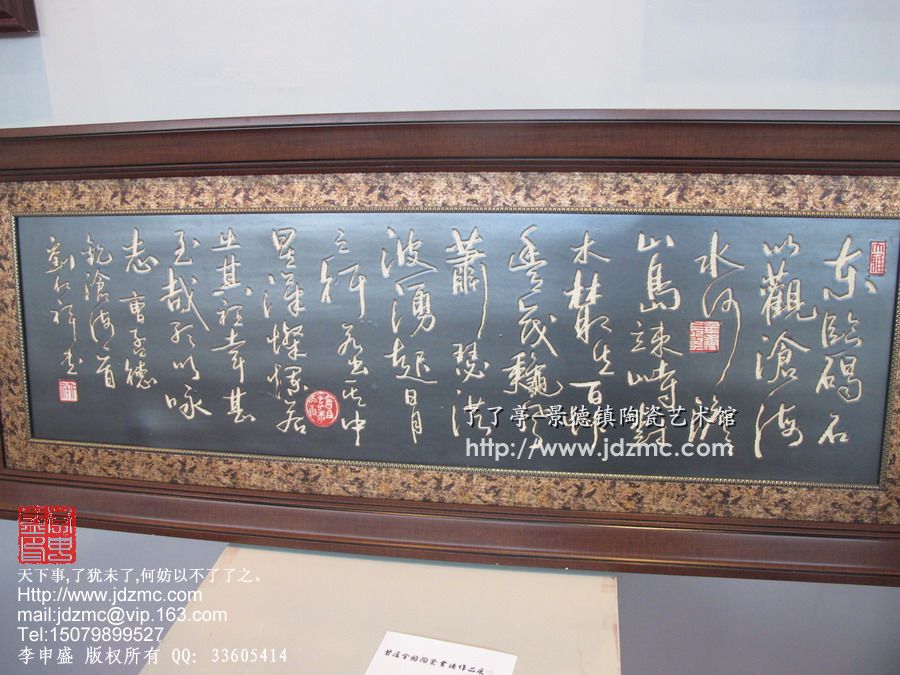 東臨碣石
以觀滄海
水何澹
山島竦峙樹
木叢生百草
豐茂秋風
蕭瑟洪
波湧起日月
之行若出其中
星漢燦爛若
出其裡幸甚
至哉歌以咏
志 曹孟德
觀滄海首
了了亭-景德镇陶瓷艺术馆
http://www.jdzmc.com
天下事,了犹未了,何妨以不了了之。
Http://www.jdzmc.com
mail:jdzmc@vip.163.com
Tel:15079899527
李申盛 版权所有 QQ: 33605414
首届全国陶瓷书法作品展